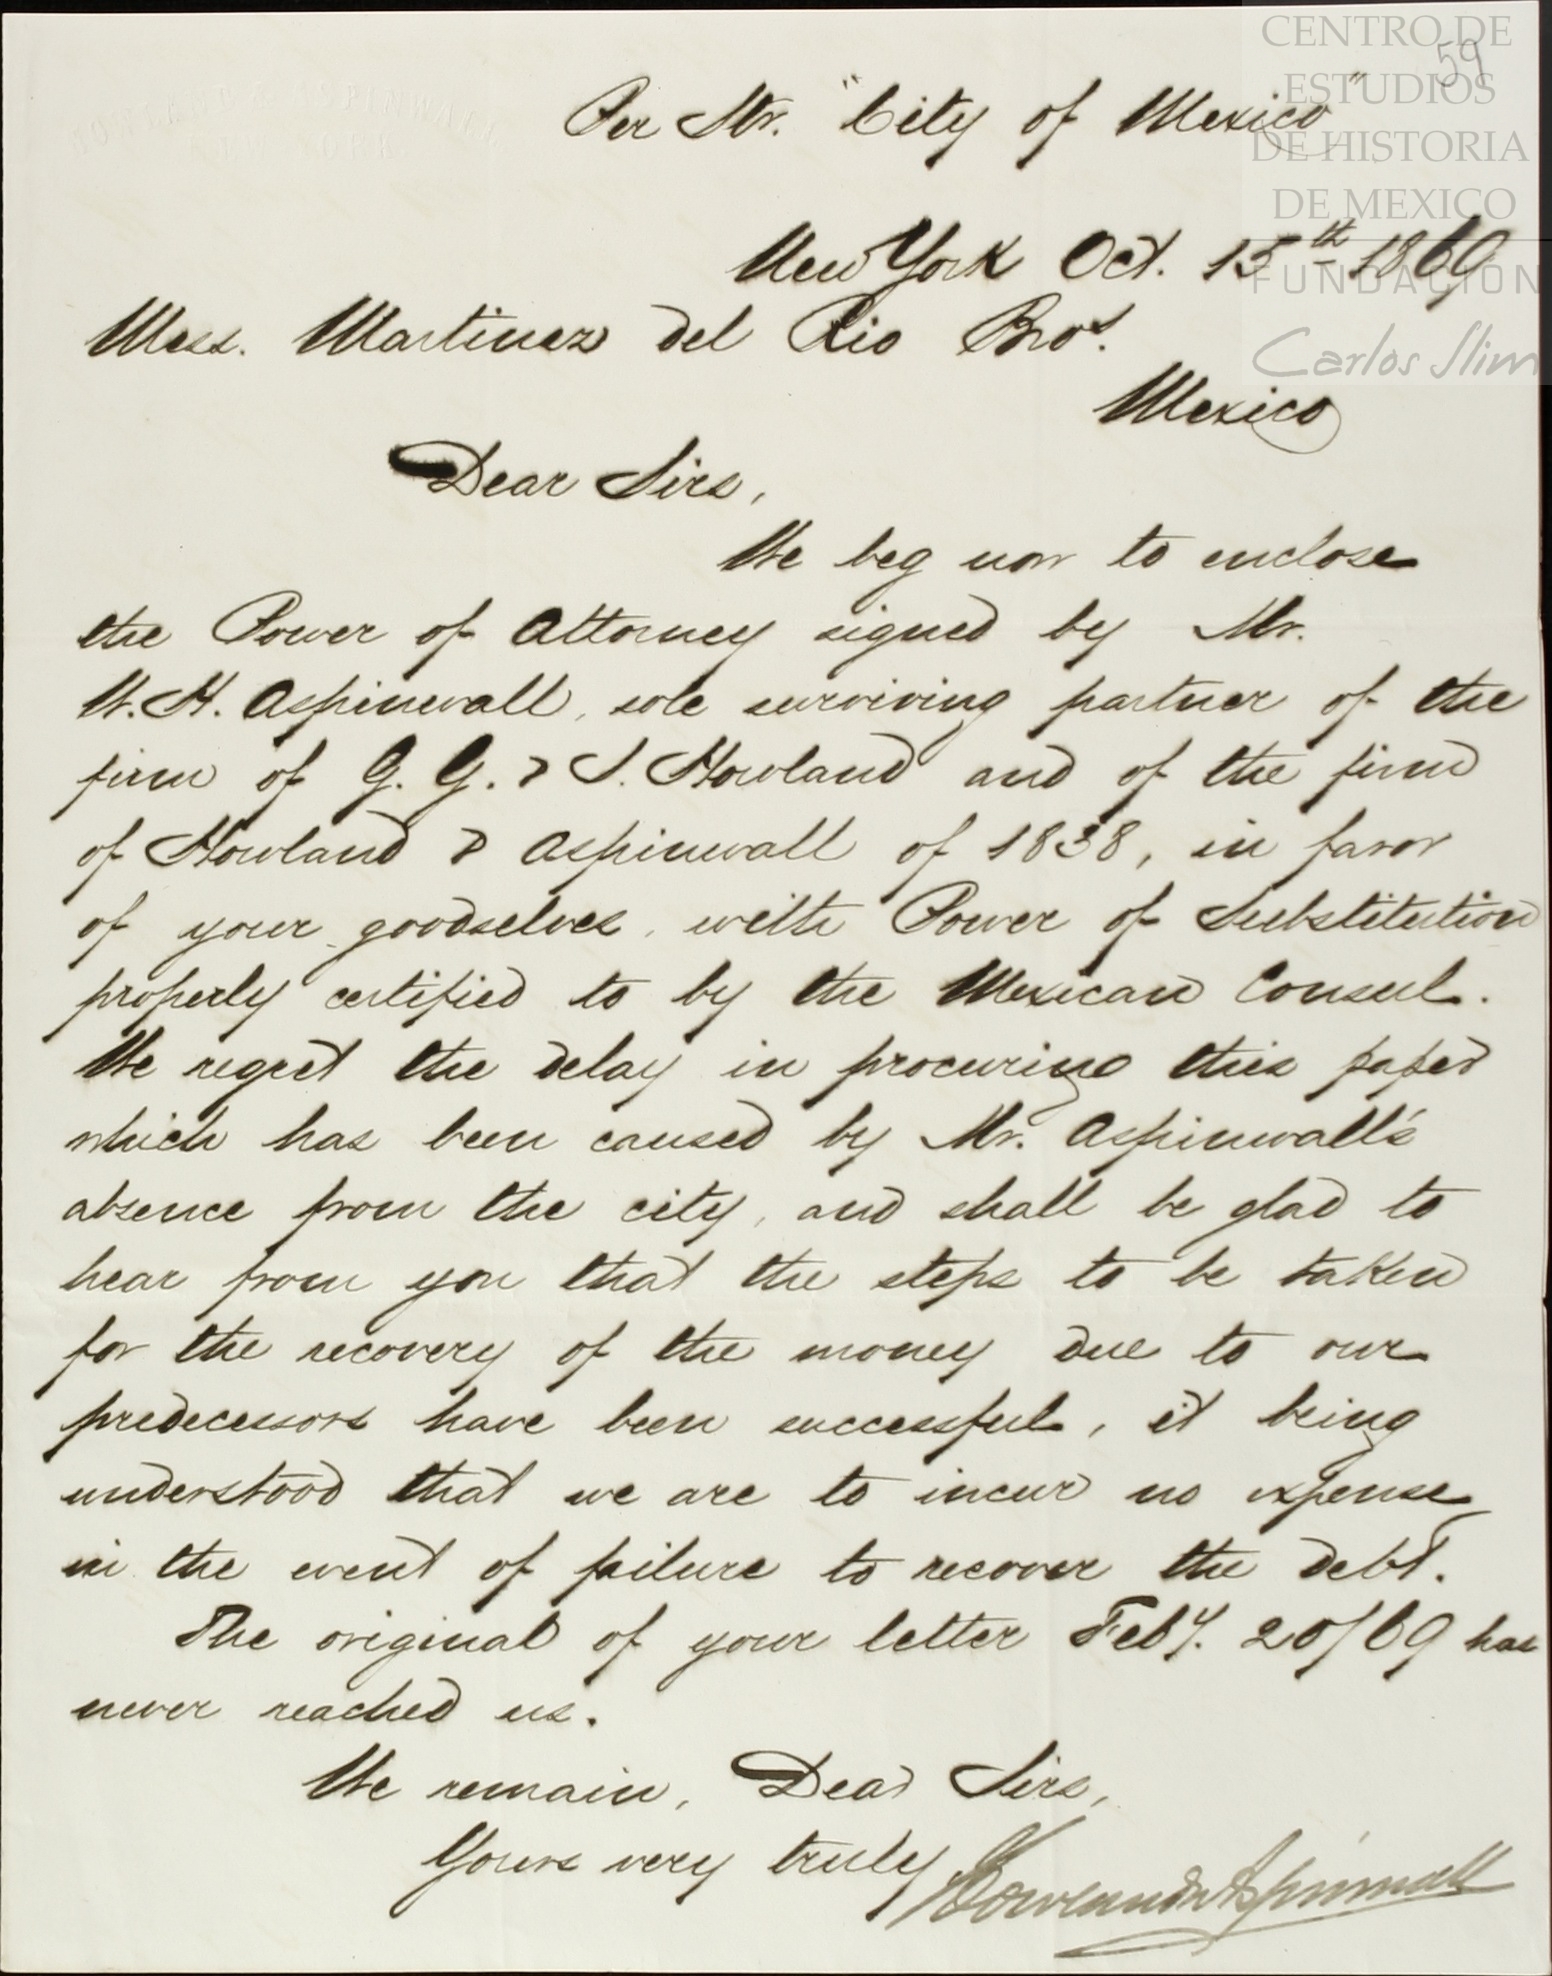 CENTRO DE
ESTUDIOS
DE HISTORIA
DE MEXICO
FUNDACION
Carlos Slim
59
HOWLAND & ASPINWALL
NEW YORK
Per Str. "City of Mexico"
New York Oct. 15th 1869
Mess. Martinez del Rio Bros.
Mexico
Dear Sirs,
We beg now to enclose
the Power of Attorney signed by Mr.
W. H. Aspinwall, sole surviving partner of the
firm of G. G. & S. Howland and of the firm
of Howland & Aspinwall of 1838, in favor
of your goodselves, with Power of Substitution
properly certified to by the Mexican Consul.
We regret the delay in procuring this paper
which has been caused by Mr. Aspinwall's
absence from the city, and shall be glad to
hear from you that the steps to be taken
for the recovery of the money due to our
predecessors have been successful, it being
understood that we are to incur no expense
in the event of failure to recover the debt.
The original of your letter Feby. 20/69 has
never reached us.
We remain, Dear Sirs,
Yours very truly
Howland & Aspinwall